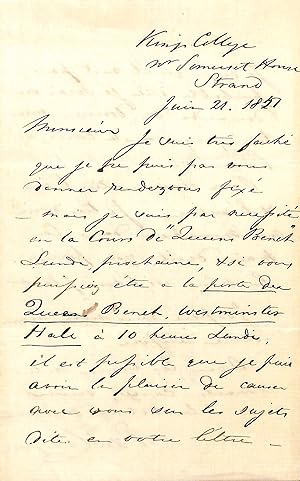 Kings College
nr Somerset House
Strand
Juin 21. 1851
Monsieur
Je suis tres faché
que je ne puis pas vous
donner rendezvous fixé
– mais je vais par necessité
en la Cours de "Queens Bench"
Lundi prochaine, & si vous
puissiez être a la porte du
Queens Bench, Westminster
Hall à 10 heures Lundi,
il est possible que je puis
avoir le plaisir de causer
avec vous sur les sujets
dits en votre lêttre –